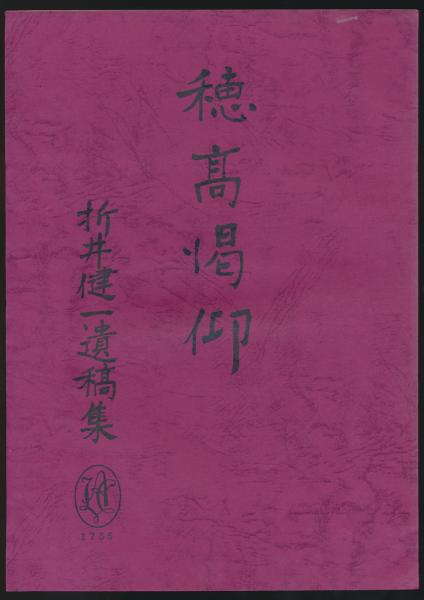 穂髙愒仰
折井健一遺稿集
1755